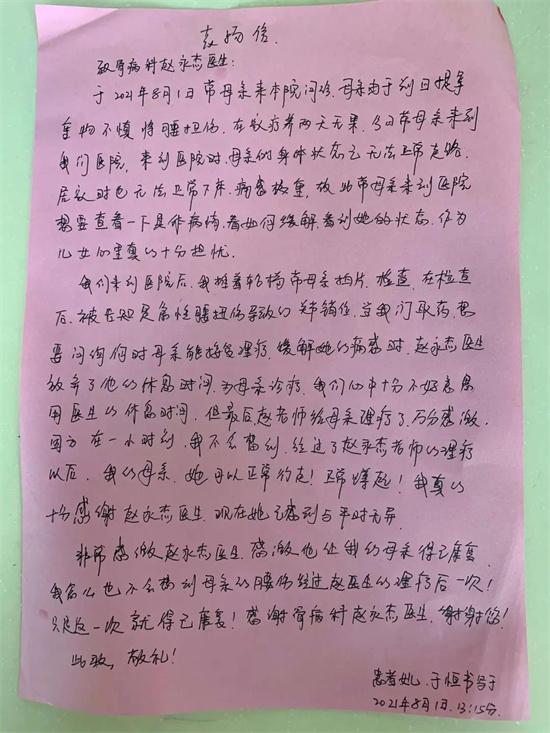 表扬信.
致骨病科赵永杰医生:
于2021年8月1日带母亲来本院问诊.母亲由于前日提拿
重物不慎将腰扭伤.在家疗养两天无果,今日带母亲来到
我们医院,来到医院时.母亲的身体状态已无法正常走路.
居家时也无法正常下床.病感极重,故此带母亲来到医院
想要查看一下是什么病情.看如何缓解.看到她的状态.作为
儿女心里真的十分担忧.
我们来到医院后.我推着轮椅带母亲拍片.检查.在检查
后.被告知是急性腰扭伤导致的.当我们取药.想
要问询何时母亲能接受理疗,缓解她的痛感时.赵永杰医生
放弃了他的休息时间.为母亲诊疗.我们心中十分不好意思
用医生的休息时间.但最后赵老师给母亲理疗了.万分感激.
因为在一小时前.我不会想到.经过了赵永杰老师的理疗
以后.我的母亲.她可以正常行走!正常蹲起!我真的
十分感谢赵永杰医生.现在她已感到与平时无异.
非常感激赵永杰医生.感激他让我的母亲得已康复.
我怎么也不会想到母亲的腰伤经过赵医生的理疗后一次!
只是这一次就得已康复!感谢骨病科赵永杰医生.谢谢您!
此致,敬礼!
患者女儿.于恒书写于
2021年8月1日.13:15分.